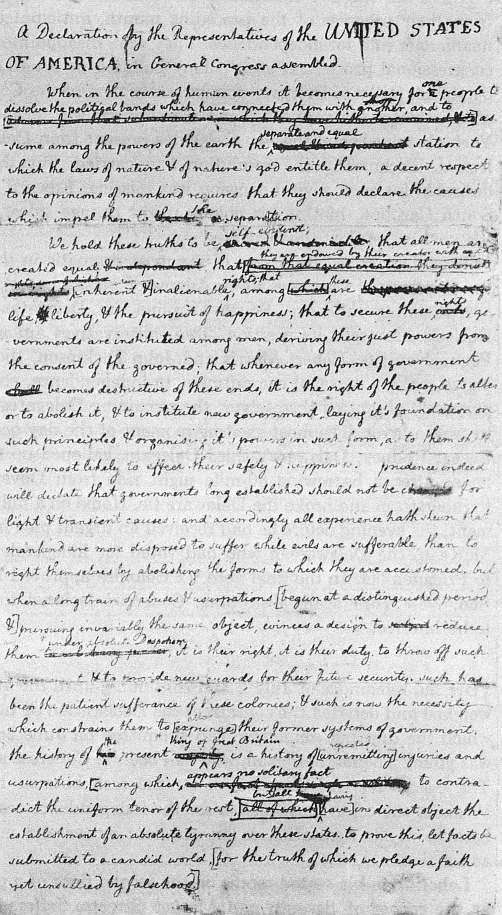 A Declaration by the Representatives of the UNITED STATES
OF AMERICA, in General Congress assembled.
When in the course of human events it becomes necessary for one people to
dissolve the political bands which have connected them with another, and to as-
sume among the powers of the earth the separate and equal station to
which the laws of nature & of nature's god entitle them, a decent respect
to the opinions of mankind requires that they should declare the causes
which impel them to the separation.
We hold these truths to be self-evident; that all men are
created equal & independent that they are endowed by their creator with
rights; that [inherent &] inalienable among which these are
life, liberty, & the pursuit of happiness; that to secure these rights, go-
vernments are instituted among men, deriving their just powers from
the consent of the governed; that whenever any form of government
becomes destructive of these ends, it is the right of the people to alter
or to abolish it, & to institute new government, laying it's foundation on
such principles & organising it's powers in such form, as to them shall
seem most likely to effect their safety & happiness. prudence indeed
will dictate that governments long established should not be changed for
light & transient causes: and accordingly all experience hath shewn that
mankind are more disposed to suffer while evils are sufferable than to
right themselves by abolishing the forms to which they are accustomed. but
when a long train of abuses & usurpations [begun at a distinguished period
&] pursuing invariably the same object, evinces a design to reduce
them under absolute Despotism, it is their right, it is their duty, to throw off such
& to provide new guards for their future security. such has
been the patient sufferance of these colonies; & such is now the necessity
which constrains them to [expunge] their former systems of government.
the history of the present King of Great Britain is a history of [unremitting] repeated injuries and
usurpations, [among which, appears no solitary fact to contra-
dict the uniform tenor of the rest, but all have] in direct object the
establishment of an absolute tyranny over these states. to prove this, let facts be
submitted to a candid world, [for the truth of which we pledge a faith
yet unsullied by falsehood]